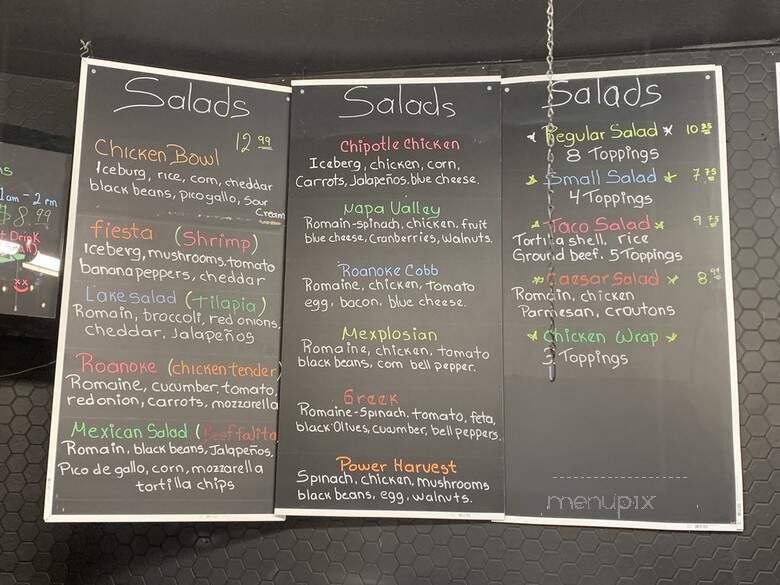 1am - 2pm
$8.99
Salads
12 99
Chicken Bowl
Iceburg, rice, corn, cheddar
black beans, pico gallo, sour
Cream
fiesta (Shrimp)
Iceberg, mushrooms, tomato
banana peppers, cheddar
Lake salad (Tilapia)
Romain, broccoli, red onions,
cheddar, Jalapeños
Roanoke (chicken tender)
Romaine, cucumber, tomato,
red onion, carrots, mozzarella
Mexican Salad (Beef fajita
Romain, black beans, Jalapeños,
Pico de gallo, corn, mozzarella
tortilla chips
Salads
Chipotle Chicken
Iceberg, chicken, corn,
Carrots, Jalapeños, blue cheese.
Napa Valley
Romain-spinach, chicken, fruit
blue cheese, Cranberries, walnuts.
Roanoke Cobb
Romaine, chicken, tomato
egg, bacon, blue cheese.
Mexplosian
Romaine, chicken, tomato
black beans, corn bell pepper.
Greek
Romaine-Spinach, tomato, feta,
black Olives, cucumber, bell peppers.
Power Harvest
Spinach, chicken, mushrooms
black beans, egg, walnuts.
Salads
Regular Salad 10
8 Toppings
Small Salad 7.75
4 Toppings
Taco Salad 9.75
Tortilla shell, rice
Ground beef. 5 Toppings
Caesar Salad 8.
Romain, chicken
Parmesan, croutons
Chicken Wrap
3 Toppings
menupix